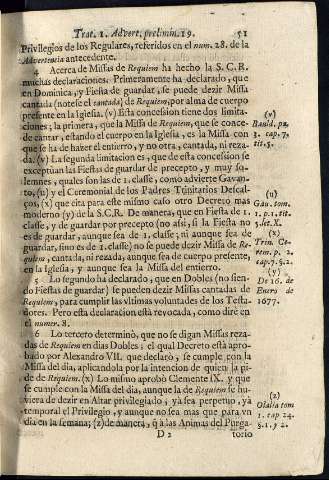 Trat. 1. Advert. prelimin. 19. 51
Privilegios de los Regulares, referidos en el num. 28. de la
Advertencia antecedente.
4 Acerca de Missas de Requiem ha hecho la S.C.R.
muchas declaraciones. Primeramente ha declarado, que
en Dominica, y Fiesta de guardar, se puede dezir Missa
cantada (notese el cantada) de Requiem, por alma de cuerpo
presente en la Iglesia. (v) Esta concession tiene dos limita-
ciones; la primera, que la Missa de Requiem, que se conce-
de cantar, estando el cuerpo en la Iglesia, es la Missa con
que se ha de hazer el entierro, y no otra, cantada, ni reza-
da. (v) La segunda limitacion es, que de esta concession se
exceptúan las Fiestas de guardar de precepto, y muy so-
lemnes, quales son las de 1. classe, como advierte Gavan-
to, (u) y el Ceremonial de los Padres Trinitarios Descal-
ços, (x) que cita para este mismo caso otro Decreto mas
moderno (y) de la S.C.R. De manera, que en Fiesta de 1.
classe, y de guardar por precepto (no assi, si la Fiesta no
es de guardar, aunque sea de 1. classe; ni aunque sea de
guardar, sino es de 1. classe) no se puede dezir Missa de Re-
quiem, cantada, ni rezada, aunque sea de cuerpo presente,
en la Iglesia, y aunque sea la Missa del entierro.
5 Lo segundo ha declarado, que en Dobles (no sien-
do Fiestas de guardar) se pueden dezir Missas cantadas de
Requiem, para cumplir las vltimas voluntades de los Testa-
dores. Pero esta declaracion està revocada, como dirè en
el numer. 8.
6 Lo tercero determinò, que no se digan Missas reza-
das de Requiem en dias Dobles; el qual Decreto està apro-
bado por Alexandro VII. que declarò, se cumple con la
Missa del dia, aplicandola por la intencion de quien la pi-
de de Requiem. (x) Lo mismo aprobò Clemente IX. y que
se cumple con la Missa del dia, aunque la de Requiem se hu-
viera de dezir en Altar privilegiado, yà sea perpetuo, yà
temporal el Privilegio, y aunque no sea mas que para vn
dia en la semana; (z) de manera, q̃ à las Animas del Purga-
D 2 torio
(v)
Bauld. pa.
3. cap. 7,
tit. 5.
(u)
Gau. tom.
1. p. 1. tit.
5. let. X.
(x)
Trin. Ce-
rem. p. 2.
cap. 7. §. 2.
(y)
De 16. de
Enero de
1677.
(z)
Olalla tom
1. cap 24.
§. 1. y 2.